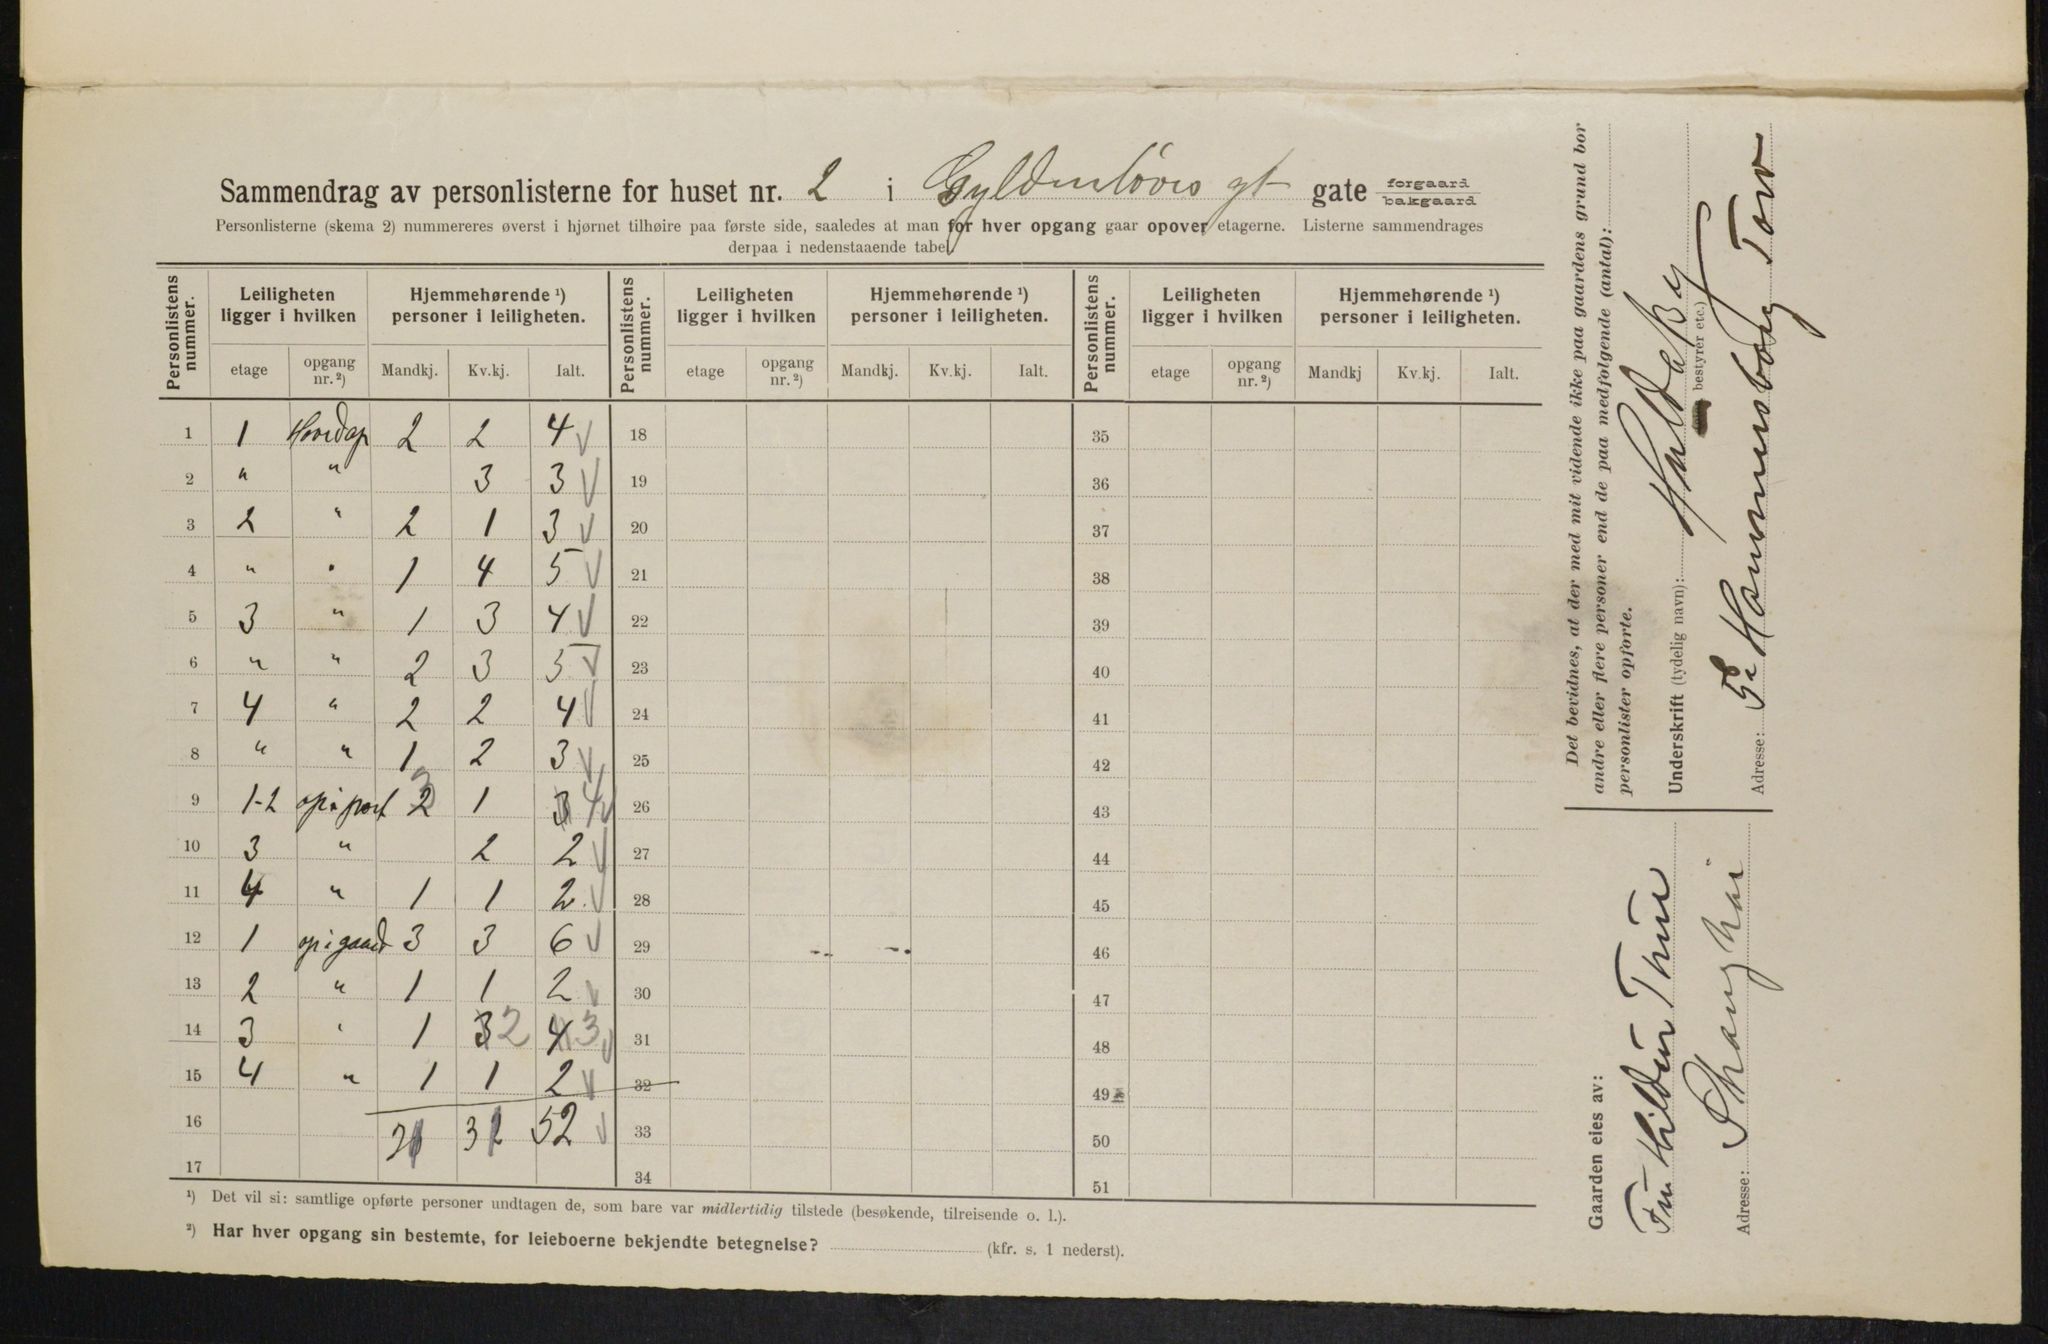 Sammendrag av personlisterne for huset nr. 2 i Gyldenløves gt gate forgaard bakgaard
Personlisterne (skema 2) nummereres øverst i hjørnet tilhøire paa første side, saaledes at man for hver opgang gaar opover etagerne. Listerne sammendrages
derpaa i nedenstaaende tabel.
Personlistens nummer. Leiligheten ligger i hvilken Hjemmehørende ¹) personer i leiligheten. Personlistens nummer. Leiligheten ligger i hvilken Hjemmehørende ¹) personer i leiligheten. Personlistens nummer. Leiligheten ligger i hvilken Hjemmehørende ¹) personer i leiligheten.
etage opgang nr. ²) Mandkj. Kv.kj. Ialt. etage opgang nr. ²) Mandkj. Kv.kj. Ialt. etage opgang nr. ²) Mandkj Kv.kj. Ialt.
1 1 Hovedop 2 2 4 18 35
2 " " 3 3 19 36
3 2 " 2 1 3 20 37
4 " " 1 4 5 21 38
5 3 " 1 3 4 22 39
6 " " 2 3 5 23 40
7 4 " 2 2 4 24 41
8 " " 1 2 3 25 42
9 1-2 op i port 2 3 1 3 4 26 43
10 3 " 2 2 27 44
11 4 " 1 1 2 28 45
12 1 op i gaard 3 3 6 29 46
13 2 " 1 1 2 30 47
14 3 " 1 3 2 4 3 31 48
15 4 " 1 1 2 32 49
16 52 33 50
17 34 51
¹) Det vil si: samtlige opførte personer undtagen de, som bare var midlertidig tilstede (besøkende, tilreisende o. l.).
²) Har hver opgang sin bestemte, for leieboerne bekjendte betegnelse? (kfr. s. 1 nederst).
Det bevidnes, at der med mit vidende ikke paa gaardens grund bor
andre eller flere personer end de paa medfølgende (antal):
personlister opførte.
Underskrift (tydelig navn):
bestyrer etc.)
Adresse: Hammersborg Torv
Gaarden eies av:
Fru Hildur Thue
Adresse: Shanghai